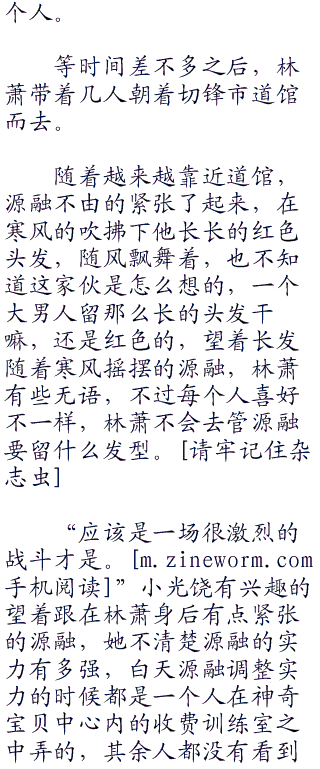 个人。
等时间差不多之后，林
萧带着几人朝着切锋市道馆
而去。
随着越来越靠近道馆，
源融不由的紧张了起来，在
寒风的吹拂下他长长的红色
头发，随风飘舞着，也不知
道这家伙是怎么想的，一个
大男人留那么长的头发干
嘛，还是红色的，望着长发
随着寒风摇摆的源融，林萧
有些无语，不过每个人喜好
不一样，林萧不会去管源融
要留什么发型。[请牢记住杂
志虫]
“应该是一场很激烈的
战斗才是。[m.zineworm.com
手机阅读]”小光饶有兴趣的
望着跟在林萧身后有点紧张
的源融，她不清楚源融的实
力有多强，白天源融调整实
力的时候都是一个人在神奇
宝贝中心内的收费训练室之
中弄的，其余人都没有看到